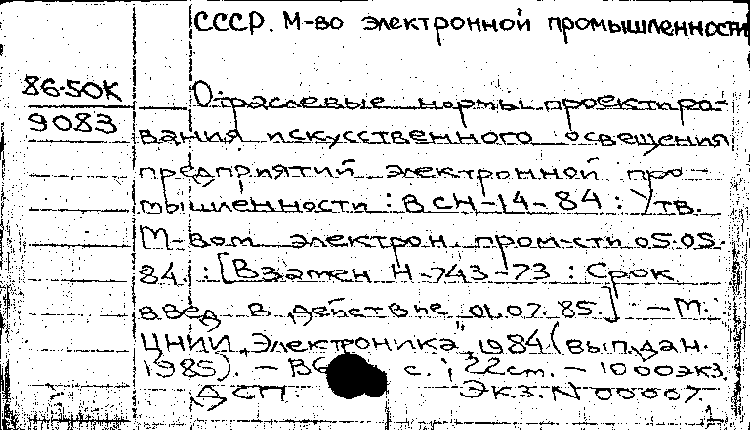 СССР. М-во электронной промышленности
86-50К
9083
Отраслевые нормы проектиро-
вания искусственного освещения
предприятий электронной про-
мышленности : ВСН-14-84 : Утв.
М-вом электрон. пром-сти 05.05.
84. : [Взамен Н-743-73 : Срок
введ. в действие 01.07.85.] – М.:
ЦНИИ „Электроника", 1984 (вып. дан.
1985). – с. ; 22 см. – 1000 экз.
ДСП. Экз. N 00007.